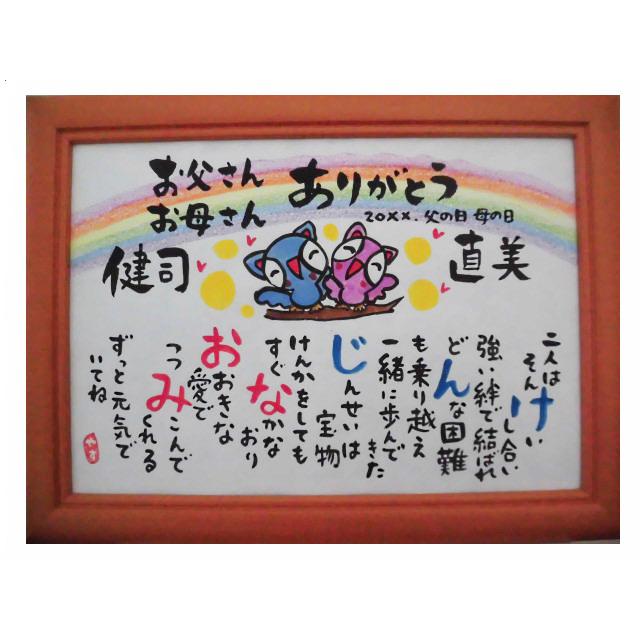 お父さん
お母さん
ありがとう
20XX.父の日 母の日
健司
直美
二人は
そんけい
し合い
強い絆で結ばれ
どんな困難
も乗り越え
一緒に歩んで
きた
じんせいは
宝物
けんかをしても
すぐなかな
おり
おおきな
愛で
つつみこんで
くれる
ずっと元気で
いてね
やす